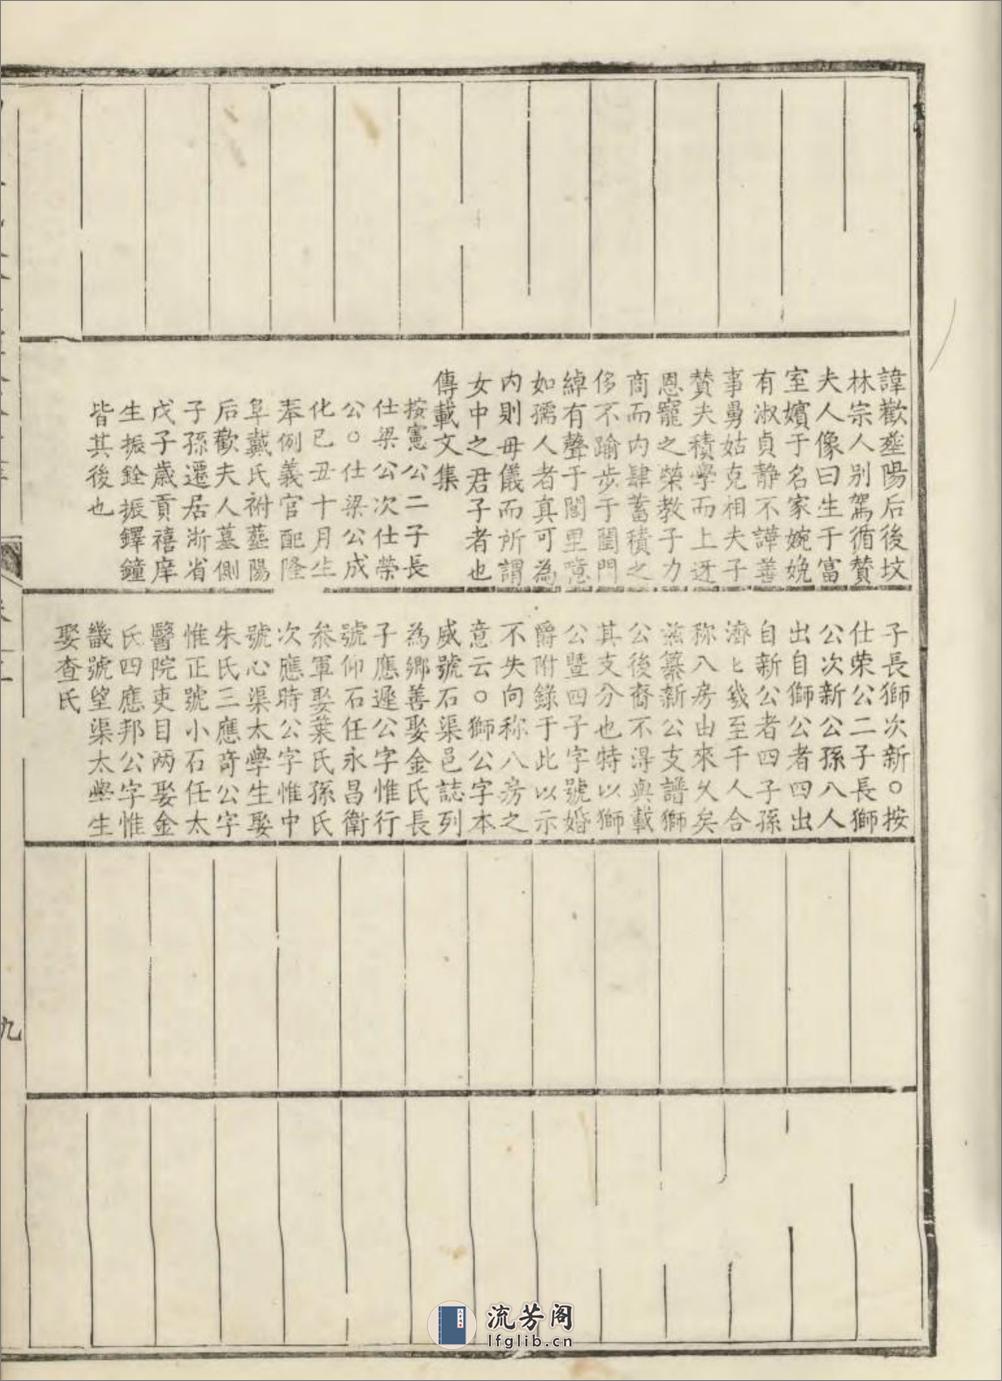 諱歡塟陽后後坟
林宗人别駕循贊
夫人像曰生于富
室嬪于名家婉娩
有淑貞静不譁善
事舅姑克相夫子
贊夫積學而上迓
恩寵之榮教子力
商而内肆蓄積之
侈不踰步于閨門
綽有聲于閭里噫
如孺人者真可為
内則毋儀而所謂
女中之君子者也
傳載文集
按憲公二子長
仕梁公次仕榮
公○仕梁公成
化己丑十月生
奉例義官配隆
阜戴氏祔塟陽
后歡夫人墓側
子孫遷居浙省
戊子歲貢禧庠
生振銓振鐸鐘
皆其後也
子長獅次新○按
仕荣公二子長獅
公次新公孫八人
出自獅公者四出
自新公者四子孫
濟匕幾至千人合
称八房由來久矣
兹纂新公支譜獅
公後裔不淂與載
其支分也特以獅
公暨四子字號婚
爵附錄于此以示
不失向称八房之
意云○獅公字本
威號石渠邑誌列
為鄉善娶金氏長
子應遲公字惟行
號仰石任永昌衛
叅軍娶葉氏孫氏
次應時公字惟中
號心渠太學生娶
朱氏三應奇公字
惟正號小石任太
醫院吏目两娶金
氏四應邦公字惟
畿號望渠太學生
娶查氏
九
流芳阁
lfglib.cn